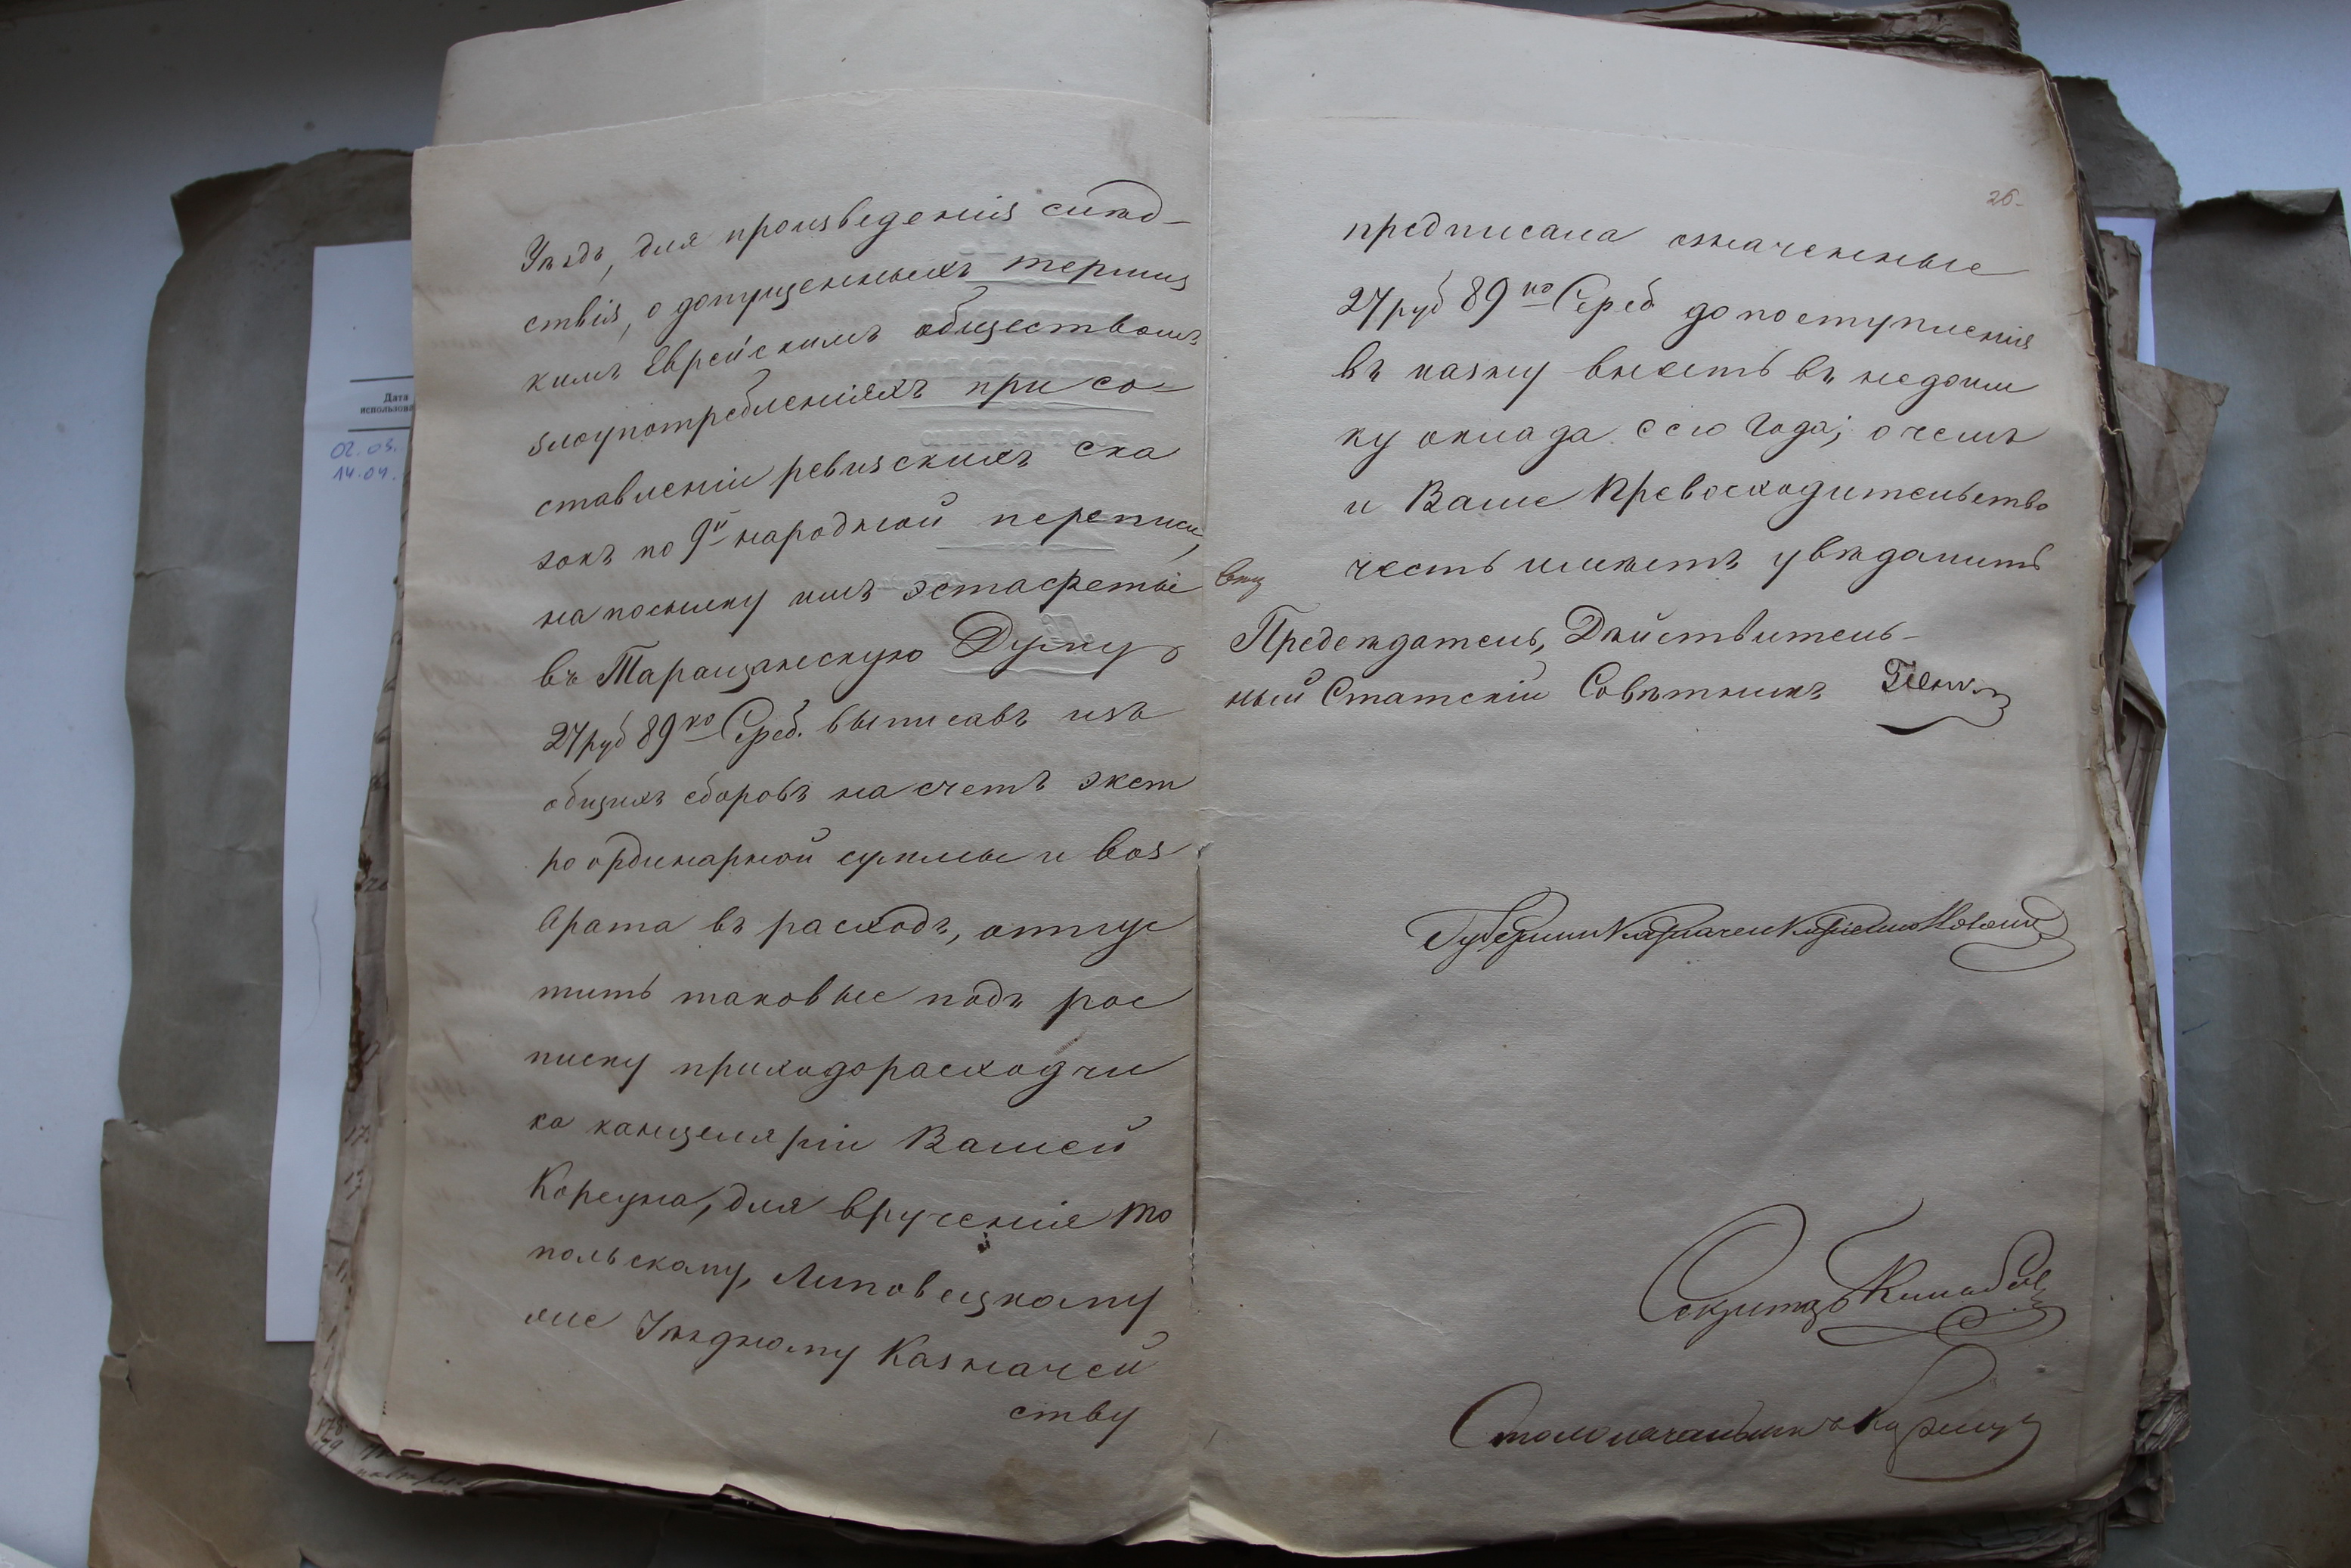 Дата
использова
02.03.
14.04.
Уѣздъ, для произведенія слѣд-
ствія, о допущенныхъ терлиц
кимъ Еврейскимъ обществомъ
злоупотребленіяхъ при со-
ставленіи ревизскихъ ска
зокъ по 9й народной переписи,
на посылку имъ эстафеты
въ Таращанскую Думу
27 руб 89 ко Сереб. выписавъ изъ
общихъ сборовъ на счетъ экст
роординарной суммы и воз
врата въ расходъ, отпус
тить таковые подъ рос
писку приходорасходчи
ка канцеляріи Вашей
Корсуна, для врученія то
польскому, Липовецкому
же Уѣздному Казначей
ству
26
предписала означенные
27 руб 89 ко Сереб до поступленія
въ казну внесть въ недоим
ку оклада сего Года; о чемъ
и Ваше Превосходительство
честь имѣетъ увѣдомить
Предсѣдатель, Дѣйствитель-
ный Статскій Совѣтникъ
Губернскій Казначей
Секретарь
Столоначальникъ